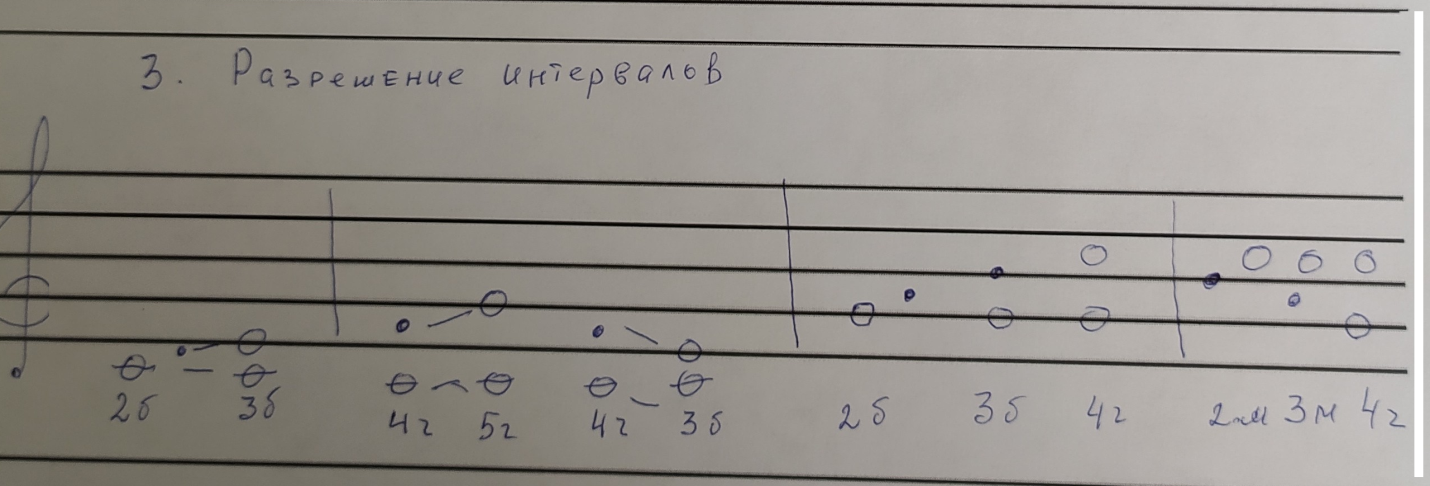 3. Разрешение интервалов
2б 3б 4г 5г 4г 3б 2б 3б 4г 3м 4г